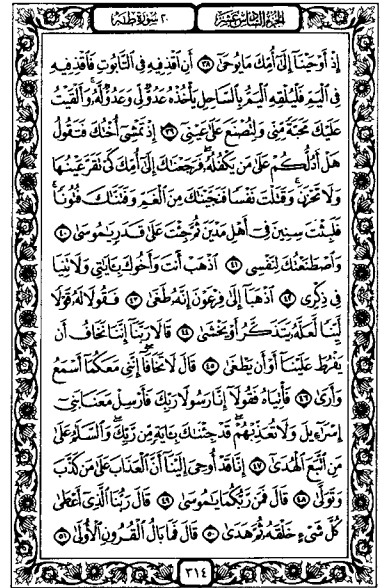 الجزء السادس عشر
٢٠ سورة طه
إِذْ أَوْحَيْنَآ إِلَىٰٓ أُمِّكَ مَا يُوحَىٰٓ ٣٨ أَنِ ٱقْذِفِيهِ فِى ٱلتَّابُوتِ فَٱقْذِفِيهِ
فِى ٱلْيَمِّ فَلْيُلْقِهِ ٱلْيَمُّ بِٱلسَّاحِلِ يَأْخُذْهُ عَدُوٌّ لِّى وَعَدُوٌّ لَّهُۥ ۚ وَأَلْقَيْتُ
عَلَيْكَ مَحَبَّةً مِّنِّى وَلِتُصْنَعَ عَلَىٰ عَيْنِىٓ ٣٩ إِذْ تَمْشِىٓ أُخْتُكَ فَتَقُولُ
هَلْ أَدُلُّكُمْ عَلَىٰ مَن يَكْفُلُهُۥ ۖ فَرَجَعْنَٰكَ إِلَىٰٓ أُمِّكَ كَىْ تَقَرَّ عَيْنُهَا
وَلَا تَحْزَنَ ۚ وَقَتَلْتَ نَفْسًا فَنَجَّيْنَٰكَ مِنَ ٱلْغَمِّ وَفَتَنَّٰكَ فُتُونًا ۚ
فَلَبِثْتَ سِنِينَ فِىٓ أَهْلِ مَدْيَنَ ثُمَّ جِئْتَ عَلَىٰ قَدَرٍ يَٰمُوسَىٰ ٤٠
وَٱصْطَنَعْتُكَ لِنَفْسِى ٤١ ٱذْهَبْ أَنتَ وَأَخُوكَ بِـَٔايَٰتِى وَلَا تَنِيَا
فِى ذِكْرِى ٤٢ ٱذْهَبَآ إِلَىٰ فِرْعَوْنَ إِنَّهُۥ طَغَىٰ ٤٣ فَقُولَا لَهُۥ قَوْلًا
لَّيِّنًا لَّعَلَّهُۥ يَتَذَكَّرُ أَوْ يَخْشَىٰ ٤٤ قَالَا رَبَّنَآ إِنَّنَا نَخَافُ أَن
يَفْرُطَ عَلَيْنَآ أَوْ أَن يَطْغَىٰ ٤٥ قَالَ لَا تَخَافَآ ۖ إِنَّنِى مَعَكُمَآ أَسْمَعُ
وَأَرَىٰ ٤٦ فَأْتِيَاهُ فَقُولَآ إِنَّا رَسُولَا رَبِّكَ فَأَرْسِلْ مَعَنَا بَنِىٓ
إِسْرَٰٓءِيلَ وَلَا تُعَذِّبْهُمْ ۖ قَدْ جِئْنَٰكَ بِـَٔايَةٍ مِّن رَّبِّكَ ۖ وَٱلسَّلَٰمُ عَلَىٰ
مَنِ ٱتَّبَعَ ٱلْهُدَىٰٓ ٤٧ إِنَّا قَدْ أُوحِىَ إِلَيْنَآ أَنَّ ٱلْعَذَابَ عَلَىٰ مَن كَذَّبَ
وَتَوَلَّىٰ ٤٨ قَالَ فَمَن رَّبُّكُمَا يَٰمُوسَىٰ ٤٩ قَالَ رَبُّنَا ٱلَّذِىٓ أَعْطَىٰ
كُلَّ شَىْءٍ خَلْقَهُۥ ثُمَّ هَدَىٰ ٥٠ قَالَ فَمَا بَالُ ٱلْقُرُونِ ٱلْأُولَىٰ ٥١
٣١٤